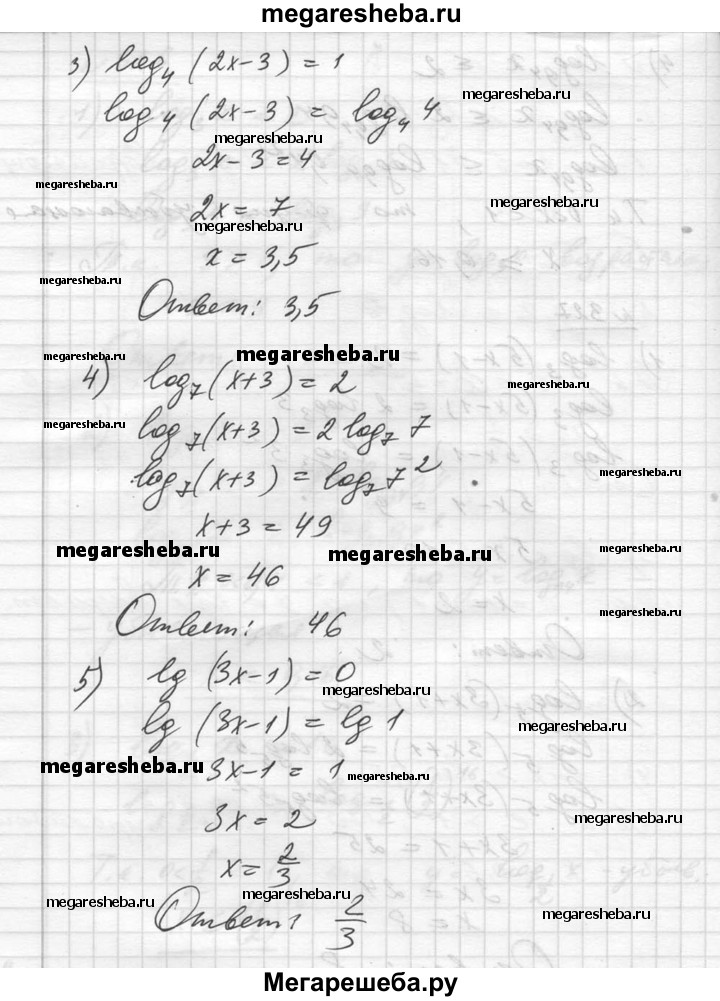 megaresheba.ru
3) log₄ (2x-3) = 1
megaresheba.ru
log₄ (2x-3) = log₄ 4
megaresheba.ru
megaresheba.ru
2x-3 = 4
megaresheba.ru
2x = 7
megaresheba.ru
megaresheba.ru
x = 3,5
megaresheba.ru
Ответ: 3,5
megaresheba.ru
megaresheba.ru
4) log₇(x+3) = 2
megaresheba.ru
megaresheba.ru
log₇(x+3) = 2 log₇ 7
log₇(x+3) = log₇ 7²
megaresheba.ru
x+3 = 49
megaresheba.ru
megaresheba.ru
megaresheba.ru
x = 46
megaresheba.ru
Ответ: 46
5) lg (3x-1) = 0
megaresheba.ru
lg (3x-1) = lg 1
megaresheba.ru
megaresheba.ru
3x-1 = 1
megaresheba.ru
3x = 2
megaresheba.ru
x = 2/3
megaresheba.ru
megaresheba.ru
Ответ: 2/3
megaresheba.ru
Мегарешеба.ру